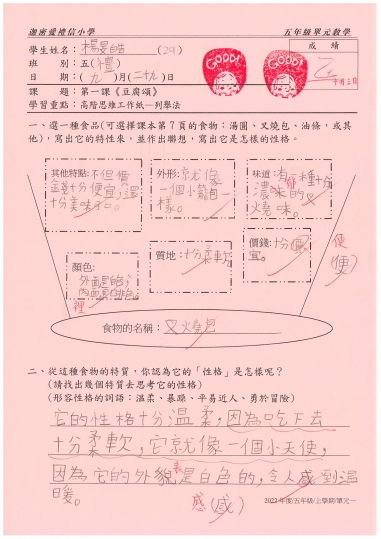 迦密愛禮信小學 五年級單元教學
學生姓名：楊旻皓（29）
成績
班別：五（禮）
日期：（九）月（二十九）日
課題：第一課《豆腐頌》
學習重點：高階思維工作紙—列舉法
GOOD!
GOOD!
一、選一種食品(可選擇課本第7頁的食物：湯圓、叉燒包、油條，或其
他)，寫出它的特性來，並作出聯想，寫出它是怎樣的性格。
其他特點:不但價
錢十分便宜，還
十分美味
外形:就像
一個小籠包一
樣。
味道:有一種十分
濃味的叉
燒味。
顏色:
外面是白色
內面是
裡
質地:十分柔軟
價錢:十分便
宜。
便
(便)
食物的名稱：叉燒包
二、從這種食物的特質，你認為它的「性格」是怎樣呢？
(請找出幾個特質去思考它的性格)
(形容性格的詞語：溫柔、暴躁、平易近人、勇於冒險)
它的性格十分溫柔，因為吃下去
十分柔軟，它就像一個小天使，
因為它的外貌是白色的，令人感到溫
表
暖。
感(感)
2022年度/五年級/上學期/單元一